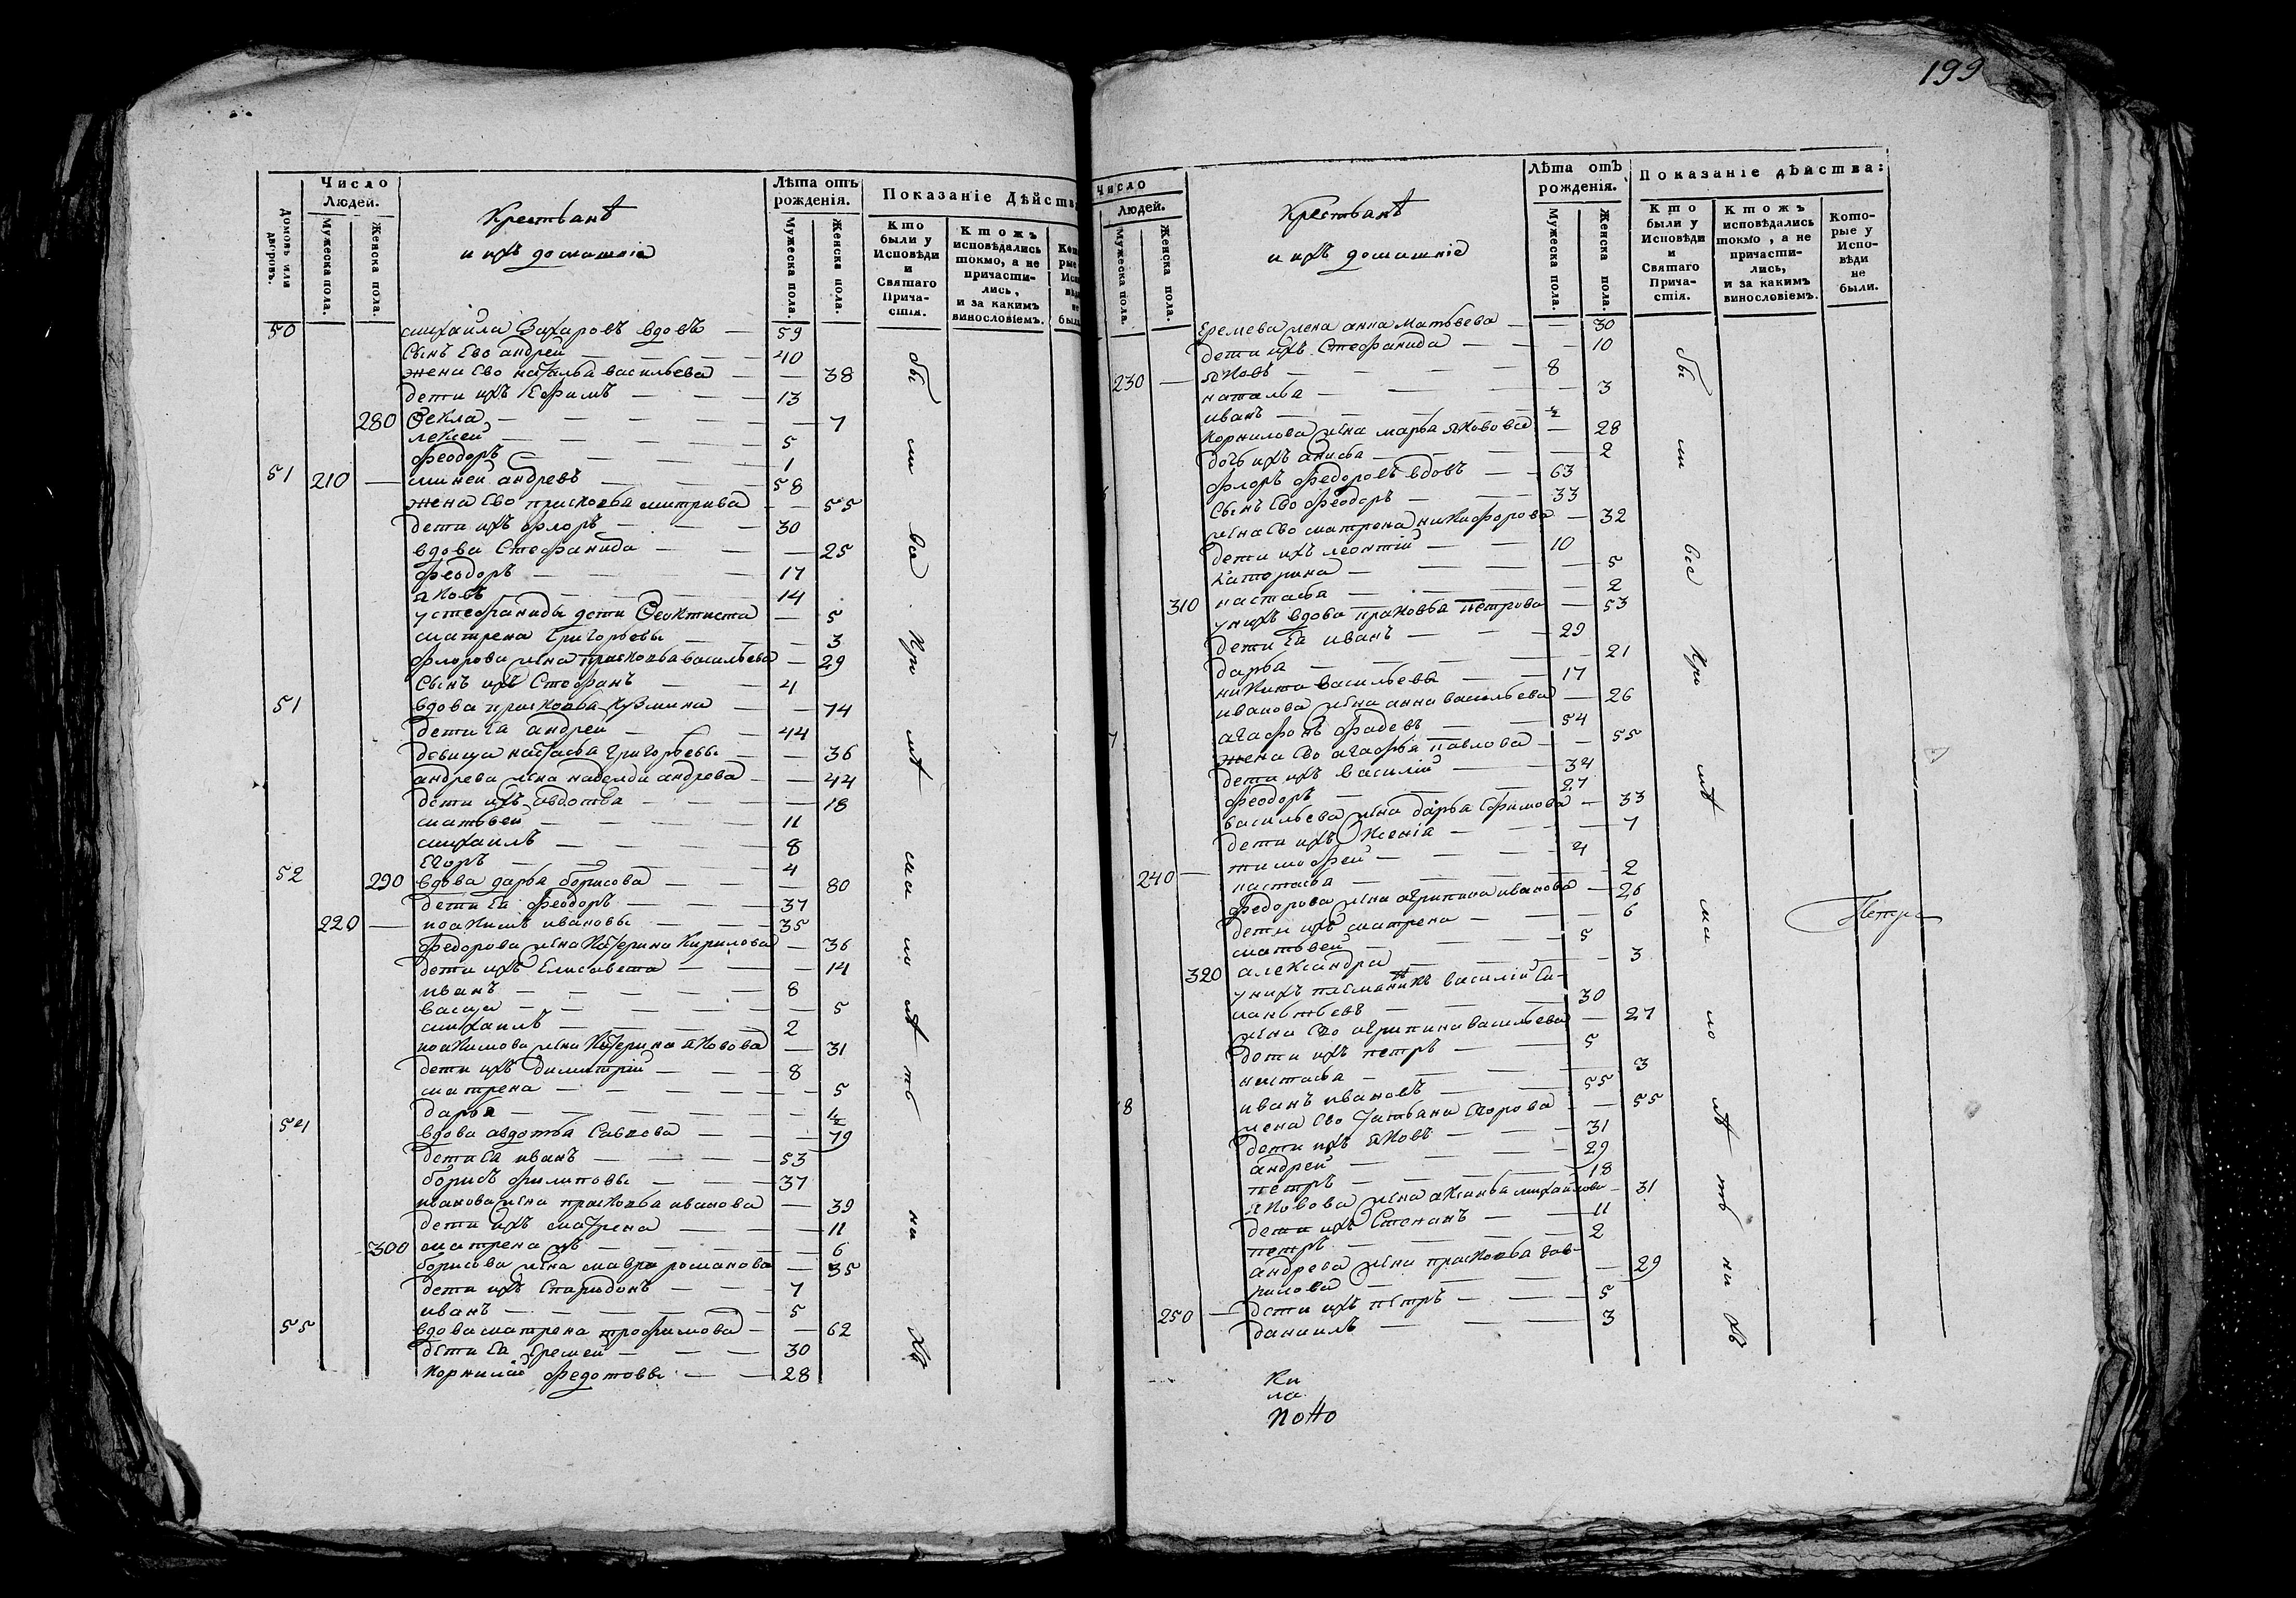 199
Число Людей.
Домовъ или дворовъ.
Мужеска пола.
Женска пола.
Крестьанѣ
и ихъ домашніе
Лѣта отъ рожденія.
Мужеска пола.
Женска пола.
Показаніе Дѣйств
Кто были у Исповѣди и Святаго Причастія.
Ктожъ исповѣдались токмо, а не причастились, и за какимъ винословіемъ.
50 михаила Захаровъ вдовъ — 59
Сынъ Ево андрей — 40
жена Ево наталья васильева — 38
дети ихъ Ефимъ — 13
280 Ѳекла — 7
лексей — 5
феодоръ — 1
51 210 — миней андревъ — 58
жена Ево прасковья митрива — 55
дети ихъ флоръ — 30
вдова Стефанида — 25
феодоръ — 17
яковъ — 14
у стефаниды дети Ѳеоктиста — 5
матрена Григорьевы — 3
флорова жена прасковья васильева — 29
Сынъ ихъ Стефанъ — 4
51 вдова прасковья Кузмина — 74
дети Ея андрей — 44
девица настасья Григорьевы — 36
андрева жена надежда андрева — 44
дети ихъ авдотья — 18
матвей — 11
михаилъ — 8
Егоръ — 4
52 290 вдова дарья борисова — 80
дети Ея феодоръ — 37
220 — иоакимъ ивановы — 35
федорова жена Катерина Кирилова — 36
дети ихъ Елисавета — 14
иванъ — 8
васса — 5
михаилъ — 2
иоакимова жена Катерина яковова — 31
дети ихъ димитрий — 8
матрена — 5
дарья — ½
54 вдова авдотья Савкова — 79
дети Ея иванъ — 53
борисъ филиповы — 37
иванова жена прасковья иванова — 39
дети ихъ матрена — 11
300 матрена жъ — 6
борисова жена мавра романова — 35
дети ихъ Спиридонъ — 7
иванъ — 5
55 вдова матрена трофимова — 62
дети Ея Еремей — 30
Корнилий федотовы — 28
бы
ли
все
при
мѣ
ма
ло
лѣ
тъ
ни
хъ
Число
Людей.
Мужеска пола.
Женска пола.
Крестьанѣ
и ихъ домашніе
Лѣта отъ рожденія.
Мужеска пола.
Женска пола.
Показаніе дѣйства:
Кто были у Исповѣди и Святаго Причастія.
Ктожъ исповѣдались токмо, а не причастились, и за какимъ винословіемъ.
Которые у Исповѣди не были.
Еремева жена анна Матвева — 30
дети ихъ Стефанида — 10
230 — яковъ — 8
наталья — 3
иванъ — ½
Корнилова жена марья яковова — 28
дочь ихъ анисья — 2
флоръ федоровъ вдовъ — 63
Сынъ Ево феодоръ — 33
жена Ево матрена никифорова — 32
дети ихъ леонтий — 10
Катерина — 5
310 настасья — 2
у нихъ вдова прасковья петрова — 53
дети Ея иванъ — 29
дарья — 21
никита васильевы — 17
иванова жена анна васильева — 26
агафонъ фадевъ — 54
жена Ево агафья павлова — 55
дети ихъ василий — 34
феодоръ — 27
васильева жена дарья Ефимова — 33
дети ихъ Ксения — 7
тимофей — 4
240 — настасья — 2
федорова жена агрипина иванова — 26
дети ихъ матрена — 6
матвей — 5
320 александра — 3
у нихъ племяникъ василий
30
жена Ево агрипина васильева — 27
дети ихъ петръ — 5
настасья — 3
8 иванъ ивановъ — 55
жена Ево Татьяна Егорова — 55
дети ихъ яковъ — 31
андрей — 29
петръ — 18
яковова жена аксинья михайлова — 31
дети ихъ Степанъ — 11
петръ — 2
андрева жена прасковья гав-
рилова — 29
250 — дети ихъ петръ — 5
даниилъ — 3
бы
ли
все
при
мѣ
ма
ло
лѣ
тъ
ни
хъ